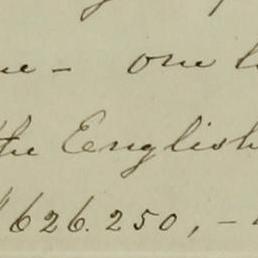 one
the English
626.250,-